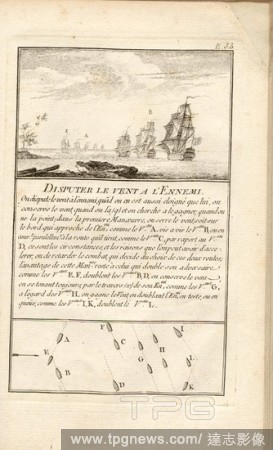 Pl. 33.
DISPUTER LE VENT A L'ENNEMI.
On dispute le vent a l'ennemi quand on en est aussi éloigné que lui, on
conserve le vent quand on la(1) et on cherche a le gagner, quand on
ne la point; dans la premiere Manœuvre, on serre le vent soit sur
le bord qui approche de l'En.mi comme le V.au A, vis a vis le V.au B, ou en
parallelle a la route qu'il tient, comme le V.au C, par raport au V.au
D, ce sont les circonstances, et les raisons que l'on peut avoir d'acce-
lerer, ou de retarder le combat, qui decide du choix de ces deux routes;
l'avantage de cette Man.vre reste a celui qui double son adversaire
comme les V.aux E, F, doublent les V.aux B, D, on conserve le vent
en se tenant toujours par le travers de son En.mi comme les V.aux G,
a legard des V.aux H, on gagne le Vent en doublant l'En.mi en teste, ou en
queüe, comme les V.aux I, K, doublent le V.au L.
A
C
I
E
G
H
L
F
B
D
K
TPG
www.tpgnews.com/ 達志影像